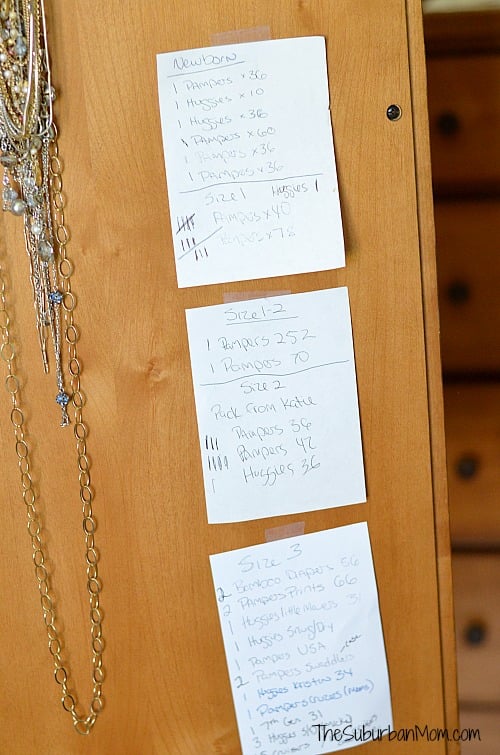 Newborn
1 Pampers x 36
1 Huggies x 10
1 Huggies x 36
1 Pampers x 60
1 Pampers x 36
1 Pampers x 36
Size 1 Huggies 1
Pampers x 40
Pampers x 78
Size 1-2
1 Pampers 252
1 Pampers 70
Size 2
Pack from Katie
III Pampers 36
IIII Pampers 42
I Huggies 36
Size 3
2 Bamboo Diapers 56
2 Pampers Prints 66
1 Huggies Little Movers 31
1 Huggies Snug/Dry
1 Pampers USA
2 Pampers Swaddlers
1 Huggies 34
1 Pampers Cruisers (moms)
1 7th Gen 31
3 Huggies
TheSuburbanMom.com